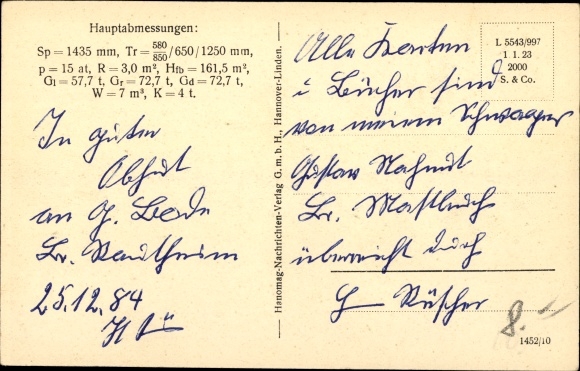 Hauptabmessungen:
Sp = 1435 mm, Tr = 580/850/650/1250 mm,
p = 15 at, R = 3,0 m², Hfb = 161,5 m²,
Gl = 57,7 t, Gr = 72,7 t, Gd = 72,7 t,
W = 7 m³, K = 4 t.
In guter
Obhut
an G. Bode
Br.
25.12.84
Hanomag-Nachrichten-Verlag G. m. b. H., Hannover-Linden.
L 5543/997
1. 1. 23
2000
S. & Co.
Alle Karten
u Bücher sind
von meinem Schwager
Gustav
Br.
überreicht durch
Rüscher
8.-
1452/10